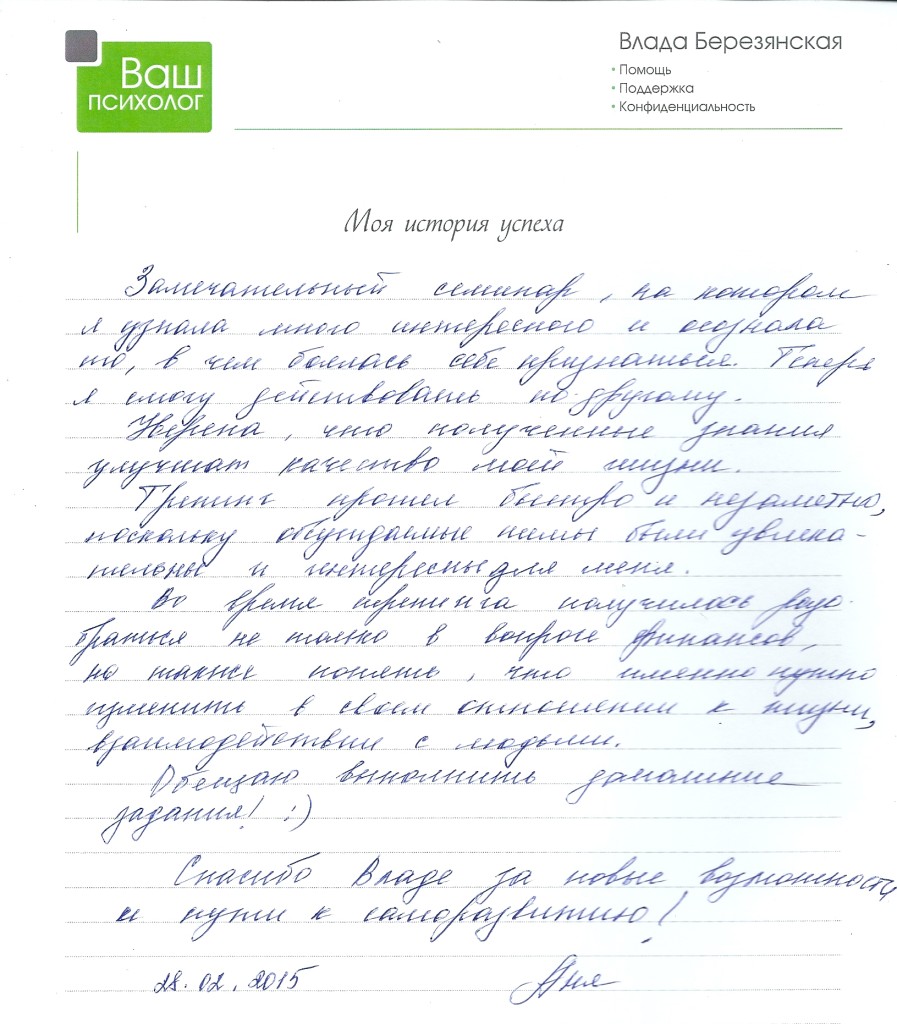 Ваш
психолог
Влада Березянская
• Помощь
• Поддержка
• Конфиденциальность
Моя история успеха
Замечательный семинар, на котором
я узнала много интересного и осознала
то, в чем боялась себе признаться. Теперь
я смогу действовать по-другому.
Уверена, что полученные знания
улучшат качество моей жизни.
Тренинг прошел быстро и незаметно,
поскольку обсуждаемые темы были увлека-
тельны и интересны для меня.
Во время тренинга получилось разо-
браться не только в вопросе финансов,
но также понять, что именно нужно
изменить в своем отношении к жизни,
взаимодействии с людьми.
Обещаю выполнить домашние
задания! :)
Спасибо Владе за новые возможности
и пути к саморазвитию!
28.02.2015 Аня